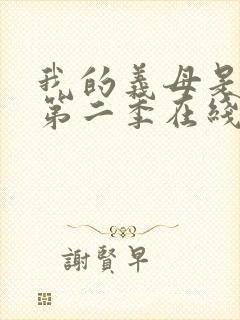 我的義母是
第二季在綫
謝賢早